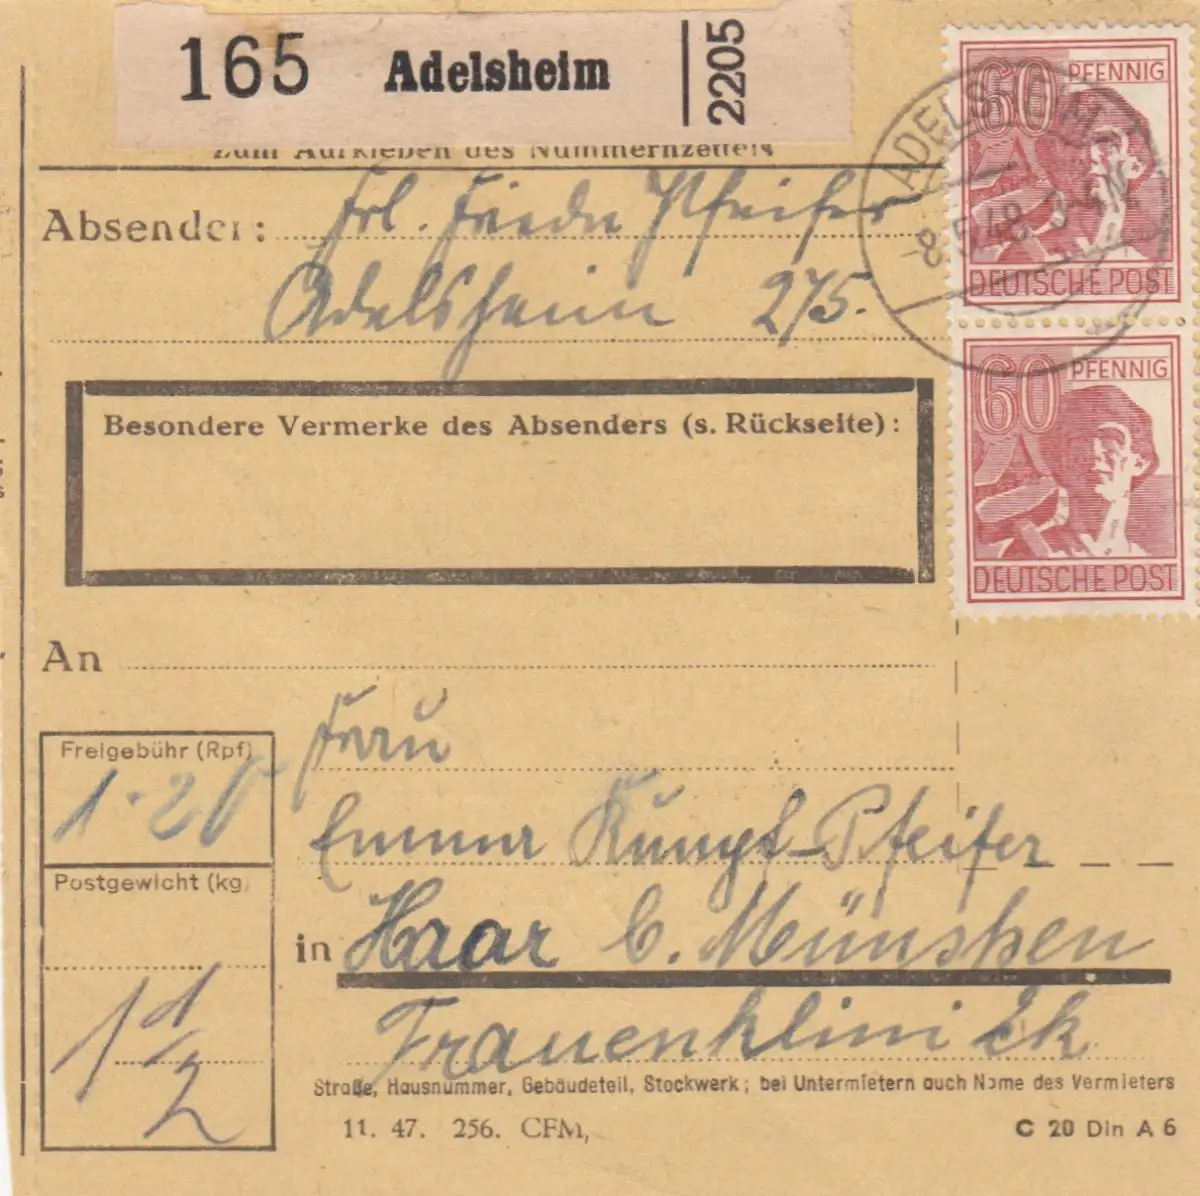 165 Adelsheim 2205
Zum Aufkleben des Nummernzettels
60 PFENNIG
DEUTSCHE POST
ADELSHEIM
-8.5.48.
60 PFENNIG
DEUTSCHE POST
Absender: Frl. Friede Pfeifer
Adelsheim 275.
Besondere Vermerke des Absenders (s. Rückseite):
An
Frau
Freigebühr (Rpf)
1.20
Emma Kumpf-Pfeifer
Postgewicht (kg)
in Haar b. München
1 1/2
Frauenklinik
Straße, Hausnummer, Gebäudeteil, Stockwerk; bei Untermietern auch Name des Vermieters
11. 47. 256. CFM, C 20 Din A 6